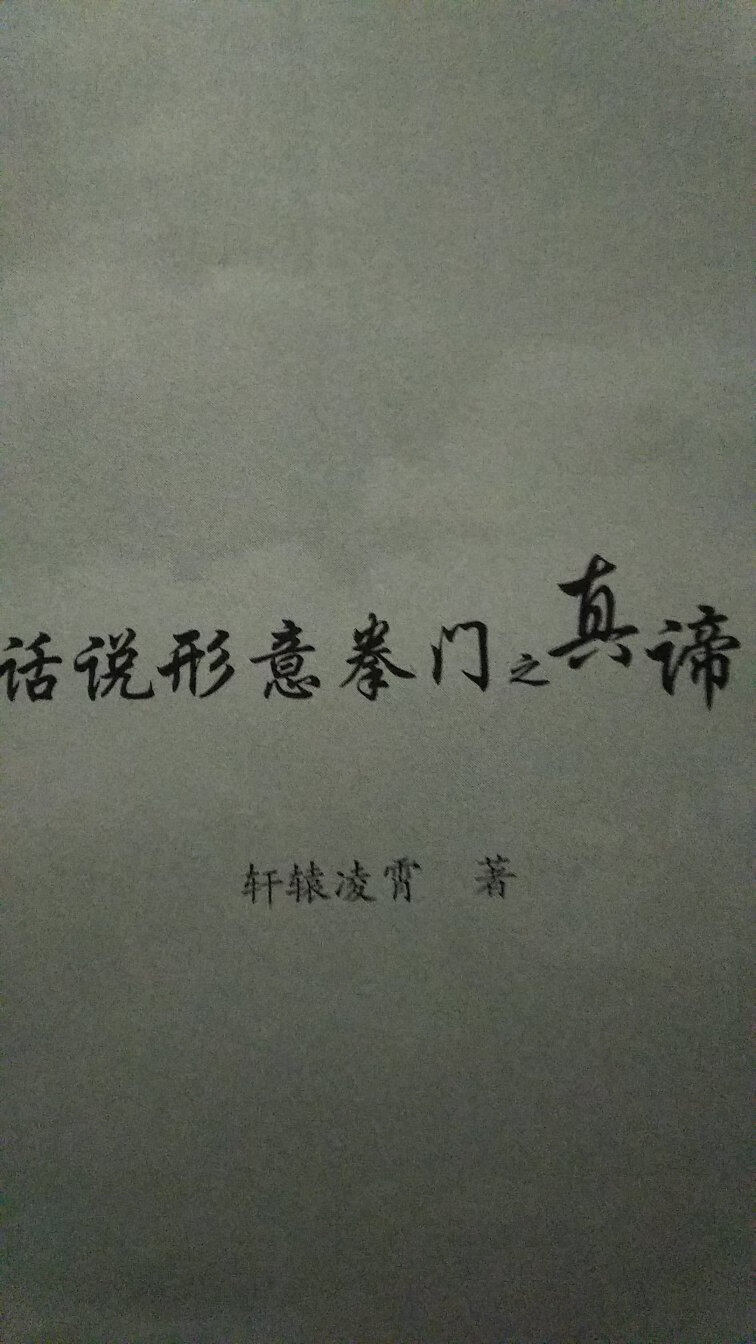 话说形意拳门之真谛
轩辕凌霄 著